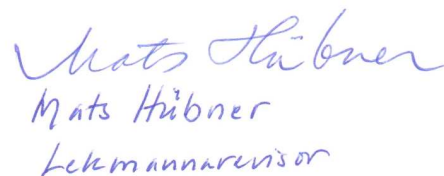 Mats Hübner
Mats Hübner
Lekmannarevisor